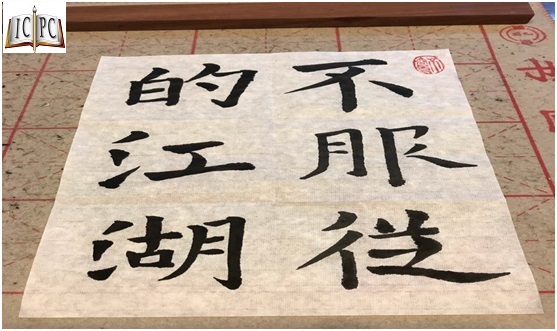 ICPC
不服従
的江湖